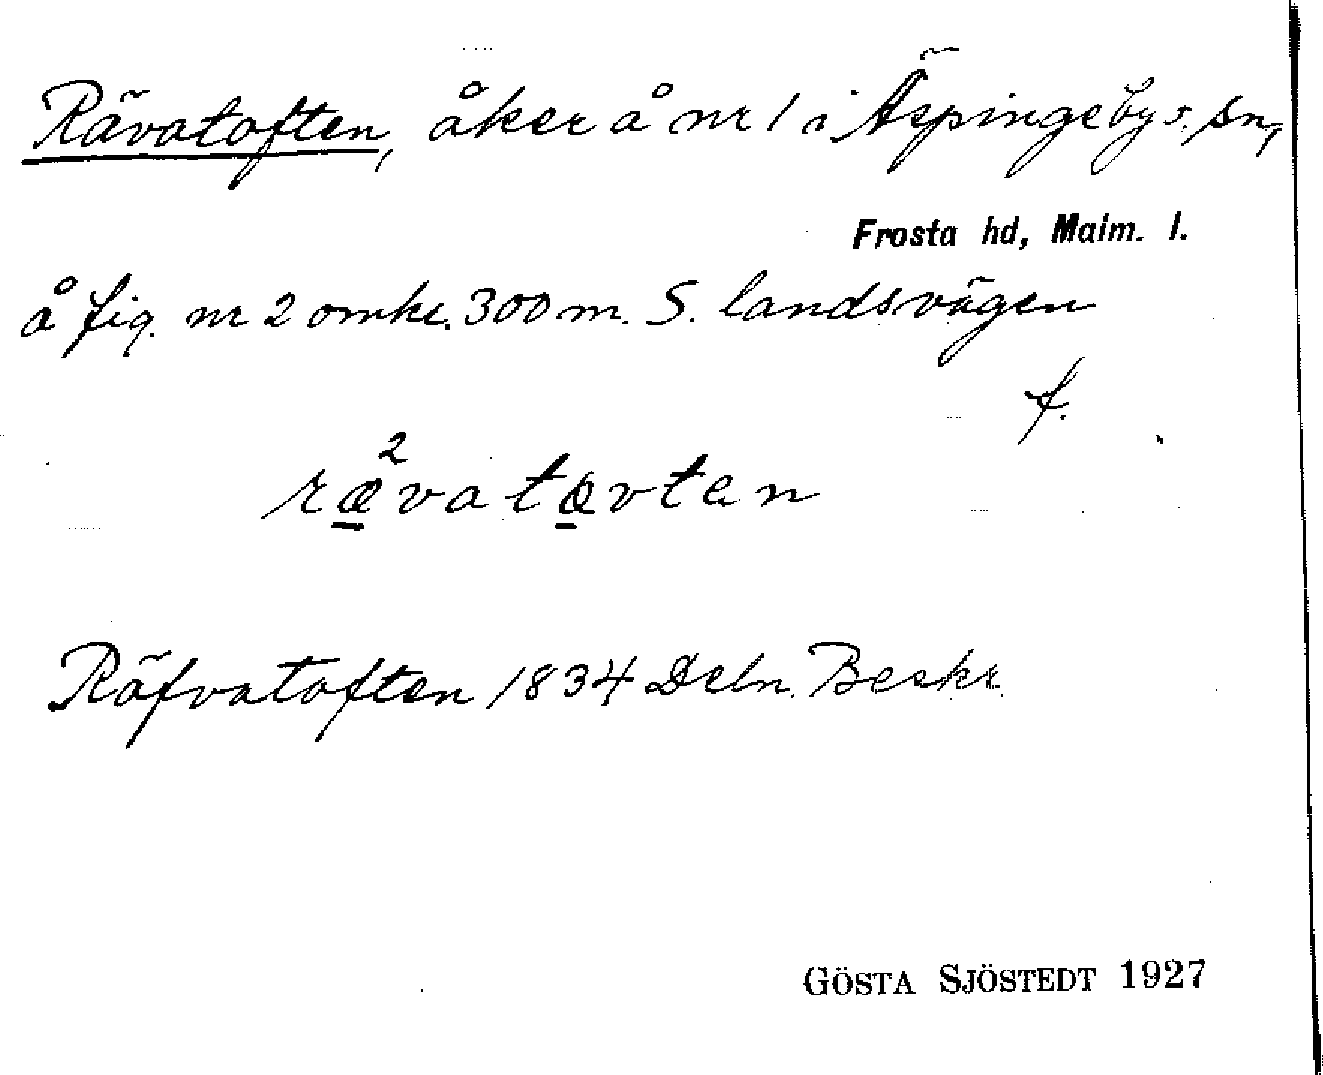 Rävatoften, åker å nr 1 i Äspinge by s. sn,
Frosta hd, Malm. l.
å fig. nr 2 omkr. 300 m. S. landsvägen
f.
ræ²vatøvten
Räfvatoften 1834 Deln. Beskr.
GÖSTA SJÖSTEDT 1927